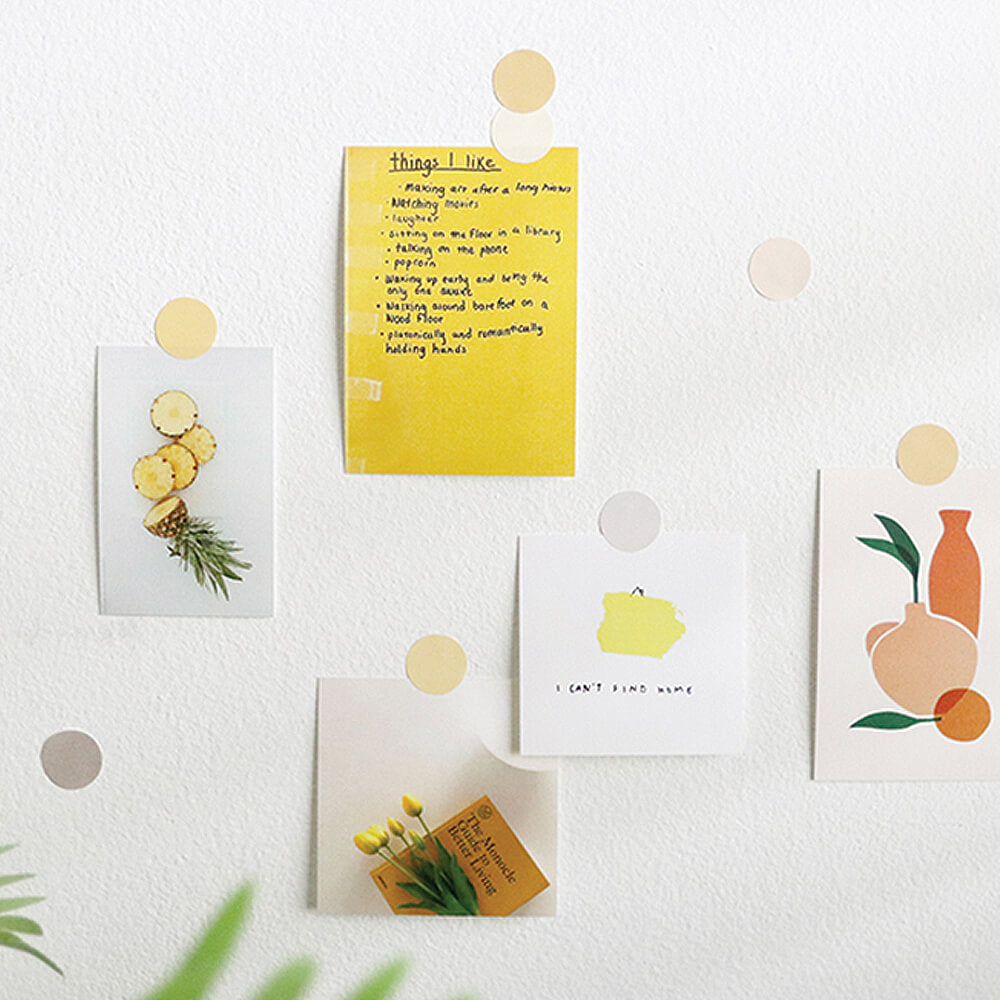 things I like
· Making art after a long hiatus
· Watching movies
· laughter
· sitting on the floor in a library
· talking on the phone
· popcorn
· Waking up early and being the
only one awake
· Walking around barefoot on a
Wood floor
· platonically and romantically
holding hands
I CAN'T FIND HOME
The Monocle
Guide to
Better Living